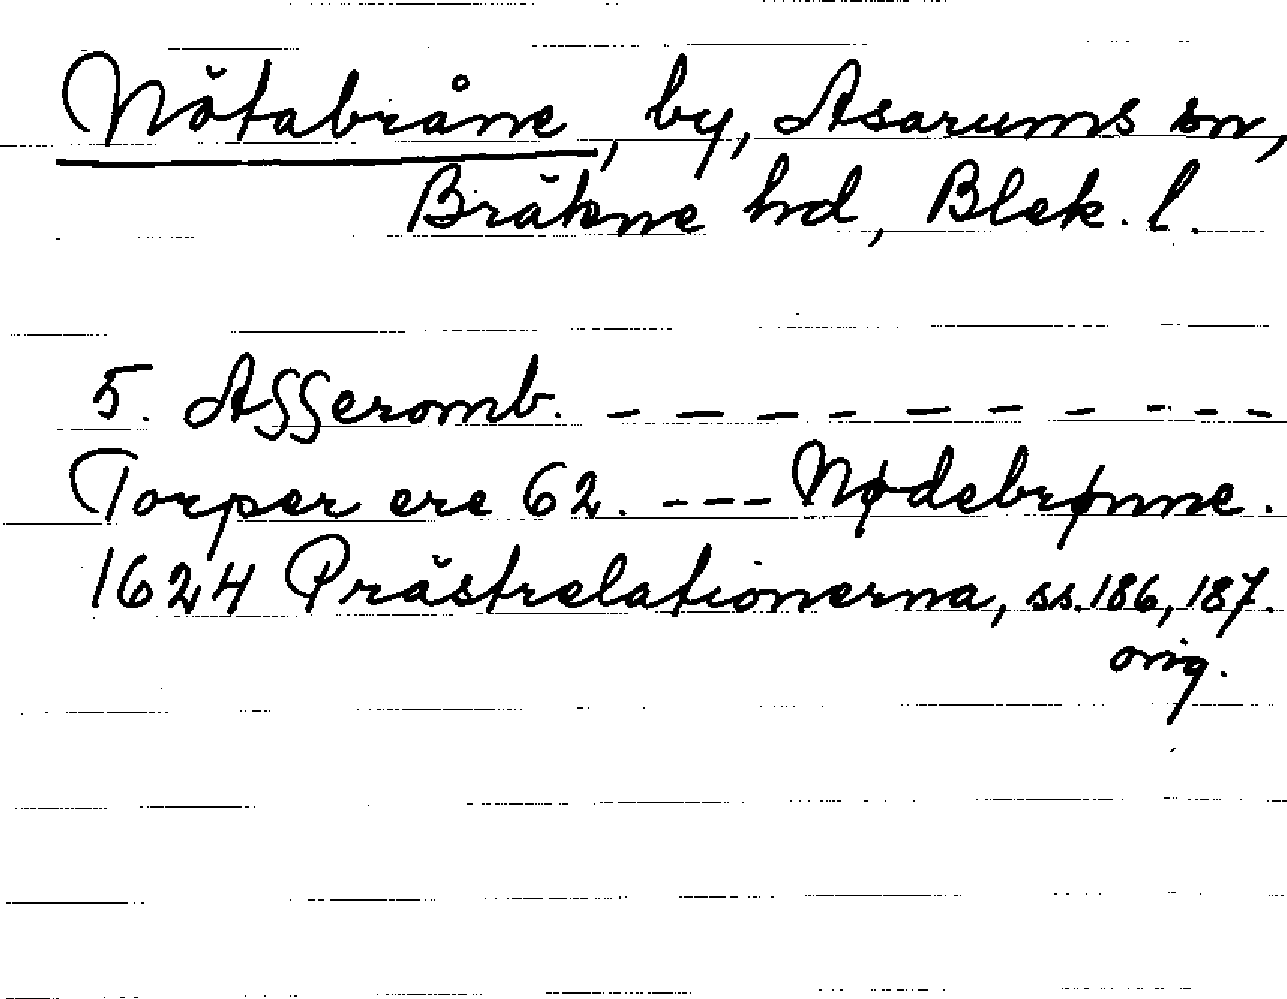 Nötabråne, by, Asarums sn,
Bräkne hd, Blek. l.
5. Asseromb. - - - - - - - - - -
Torper ere 62. - - - Nødebrønne.
1624 Prästrelationerna, ss. 186, 187.
orig.